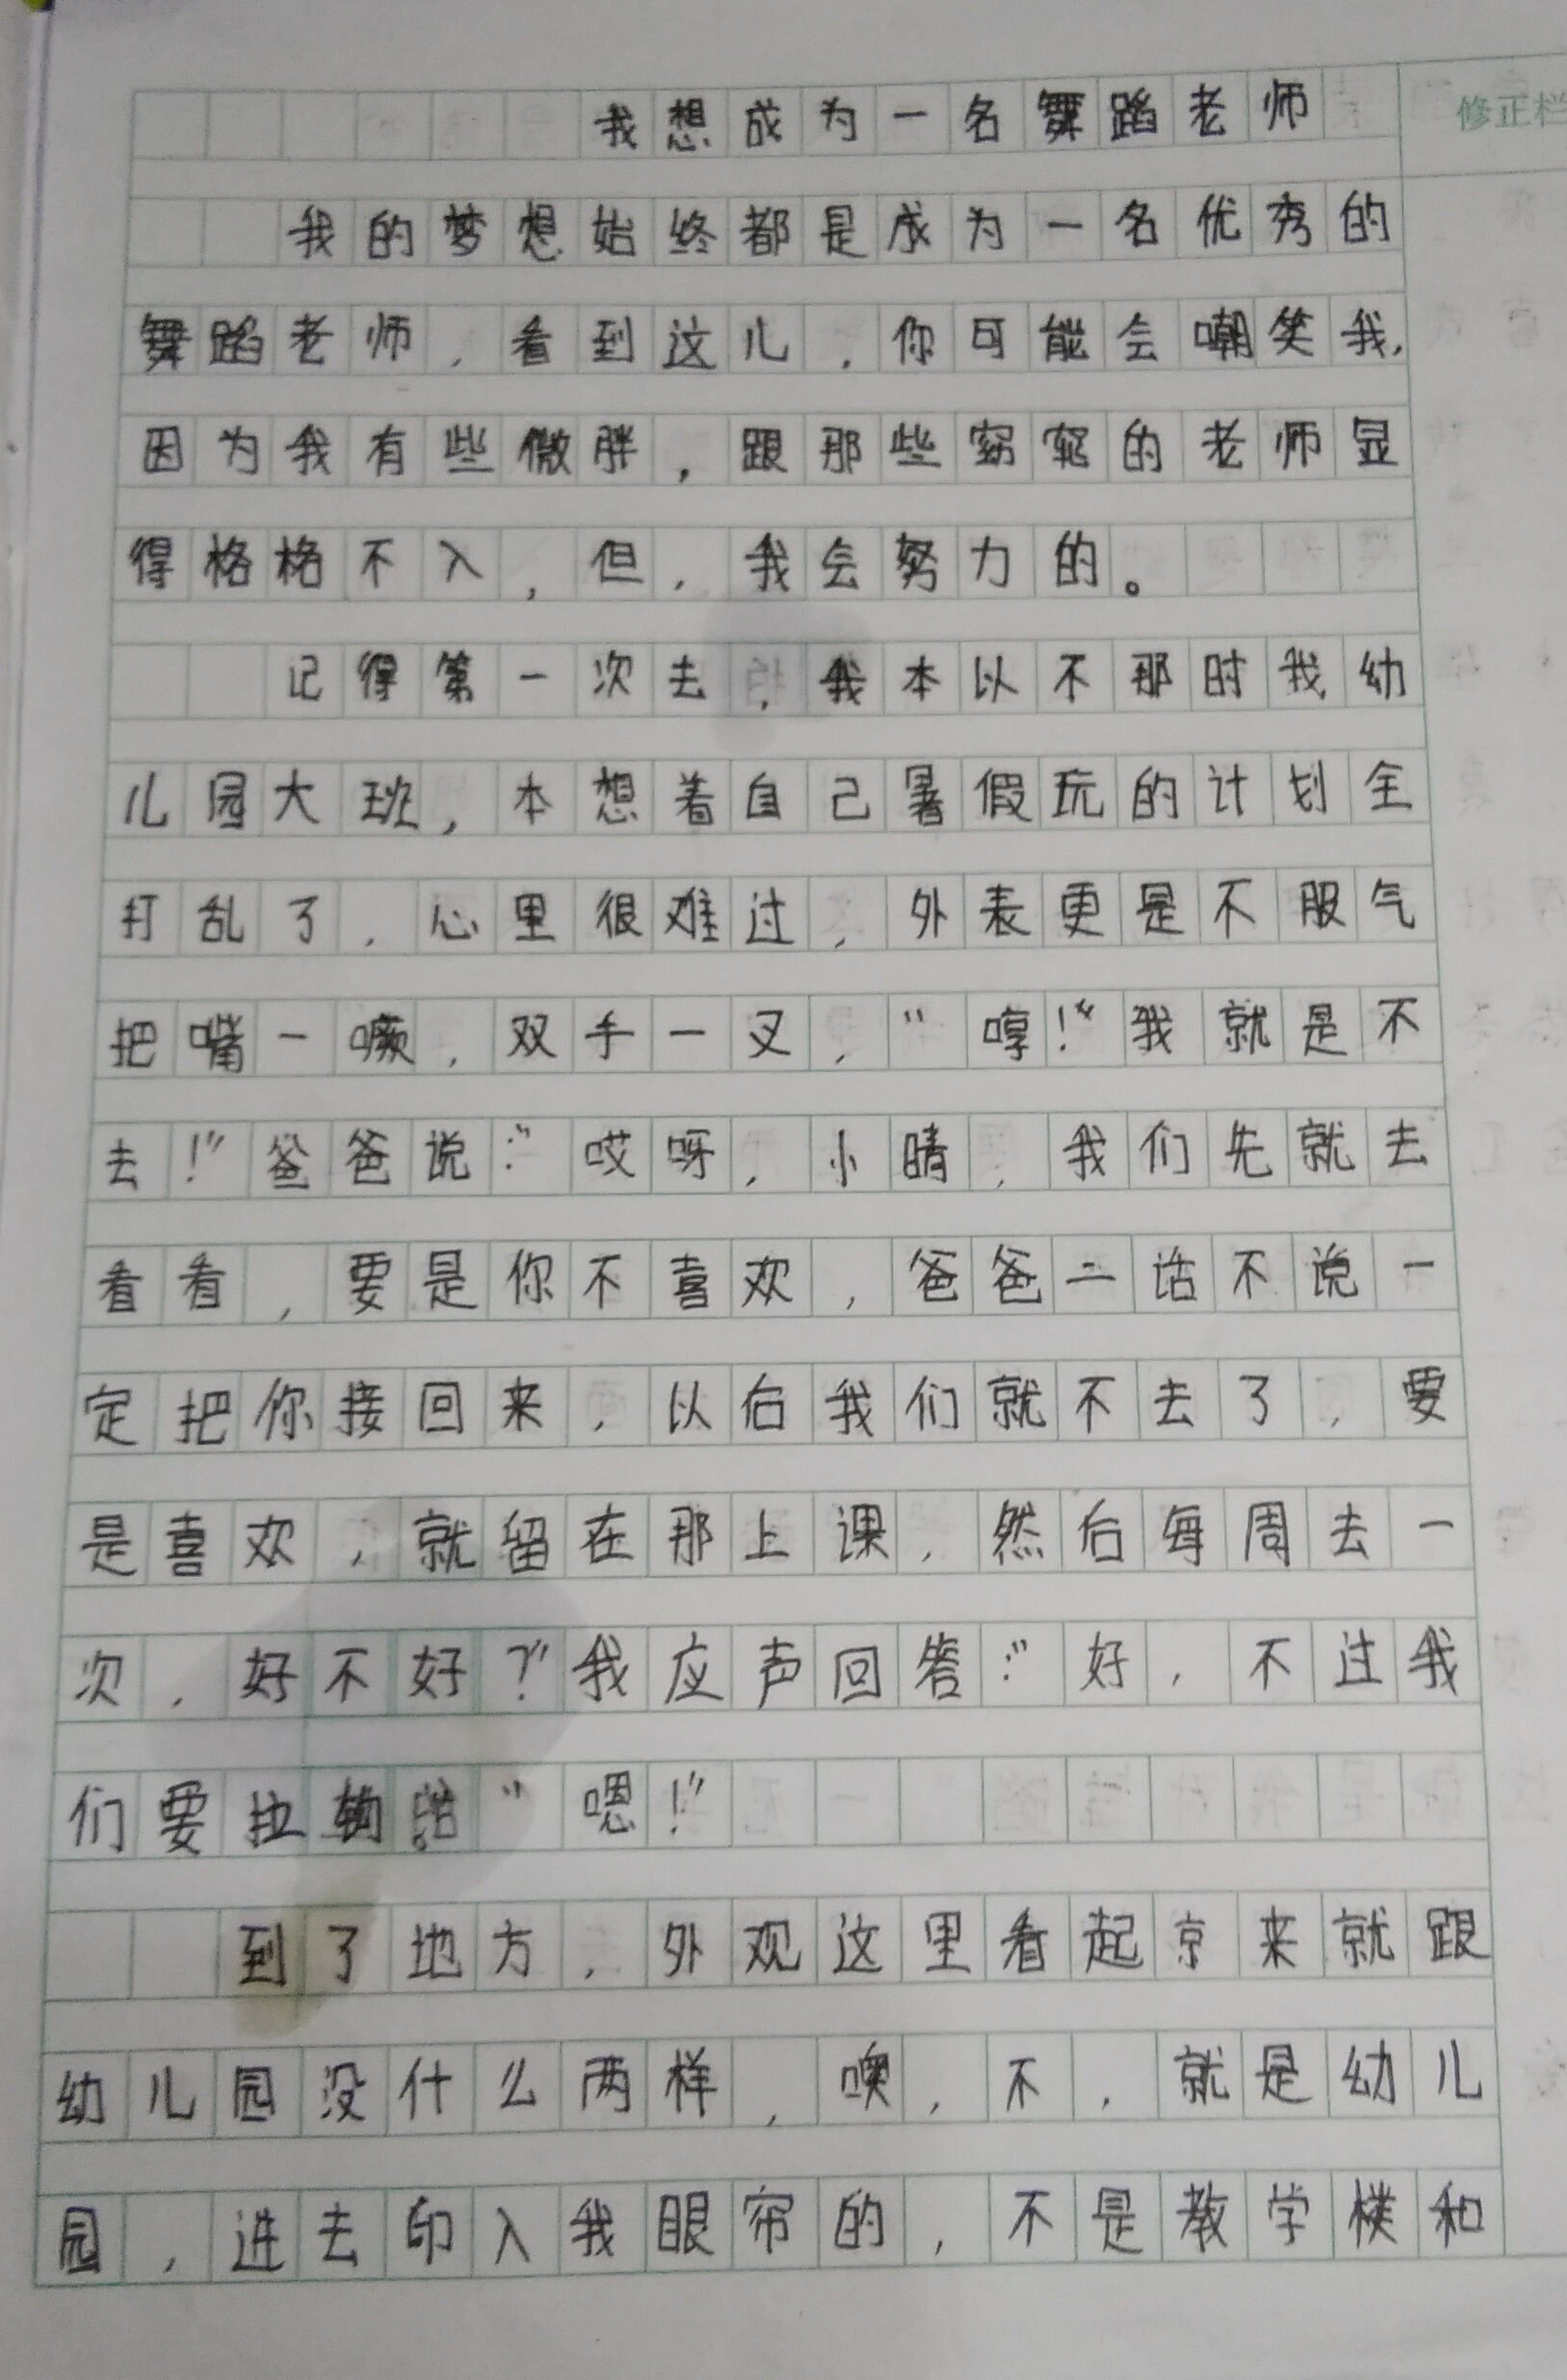 我想成为一名舞蹈老师
修正栏
我的梦想始终都是成为一名优秀的
舞蹈老师，看到这儿，你可能会嘲笑我，
因为我有些微胖，跟那些窈窕的老师显
得格格不入，但，我会努力的。
记得第一次去，我本以不那时我幼
儿园大班，本想着自己暑假玩的计划全
打乱了，心里很难过，外表更是不服气
把嘴一噘，双手一叉，“哼！”我就是不
去！”爸爸说：“哎呀，小晴，我们先就去
看看，要是你不喜欢，爸爸二话不说一
定把你接回来，以后我们就不去了，要
是喜欢，就留在那上课，然后每周去一
次，好不好？”我应声回答：“好，不过我
们要拉钩。“嗯！”
到了地方，外观这里看起京来就跟
幼儿园没什么两样，噢，不，就是幼儿
园，进去印入我眼帘的，不是教学楼和